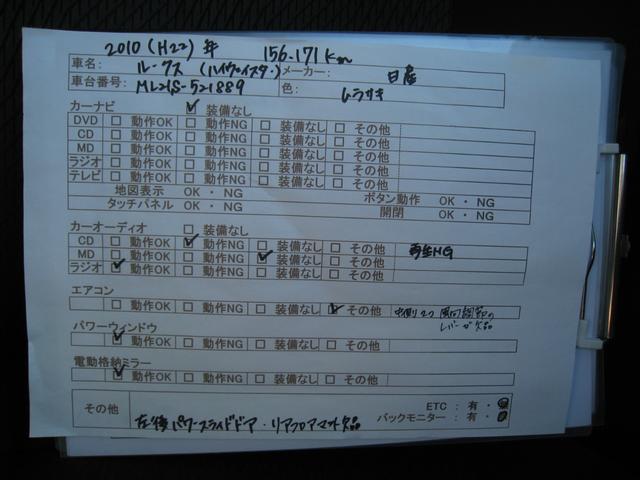 2010 (H22) 年 156.171km
車名: ルークス (ハイウェイスター) メーカー: 日産
車台番号: ML21S-521889 色: ムラサキ
カーナビ ☑ 装備なし
DVD □ 動作OK □ 動作NG □ 装備なし □ その他
CD □ 動作OK □ 動作NG □ 装備なし □ その他
MD □ 動作OK □ 動作NG □ 装備なし □ その他
ラジオ □ 動作OK □ 動作NG □ 装備なし □ その他
テレビ □ 動作OK □ 動作NG □ 装備なし □ その他
地図表示 OK ・ NG ボタン動作 OK ・ NG
タッチパネル OK ・ NG 開閉 OK ・ NG
カーオーディオ □ 装備なし
CD □ 動作OK ☑ 動作NG □ 装備なし □ その他 再生NG
MD □ 動作OK □ 動作NG ☑ 装備なし □ その他
ラジオ ☑ 動作OK □ 動作NG □ 装備なし □ その他
エアコン
□ 動作OK □ 動作NG □ 装備なし ☑ その他 中側2つ風向調節の
レバーが欠品
パワーウィンドウ
☑ 動作OK □ 動作NG □ 装備なし □ その他
電動格納ミラー
☑ 動作OK □ 動作NG □ 装備なし □ その他
その他 ETC : 有 ・
バックモニター : 有 ・
左後パワースライドドア・リアフロアマット欠品